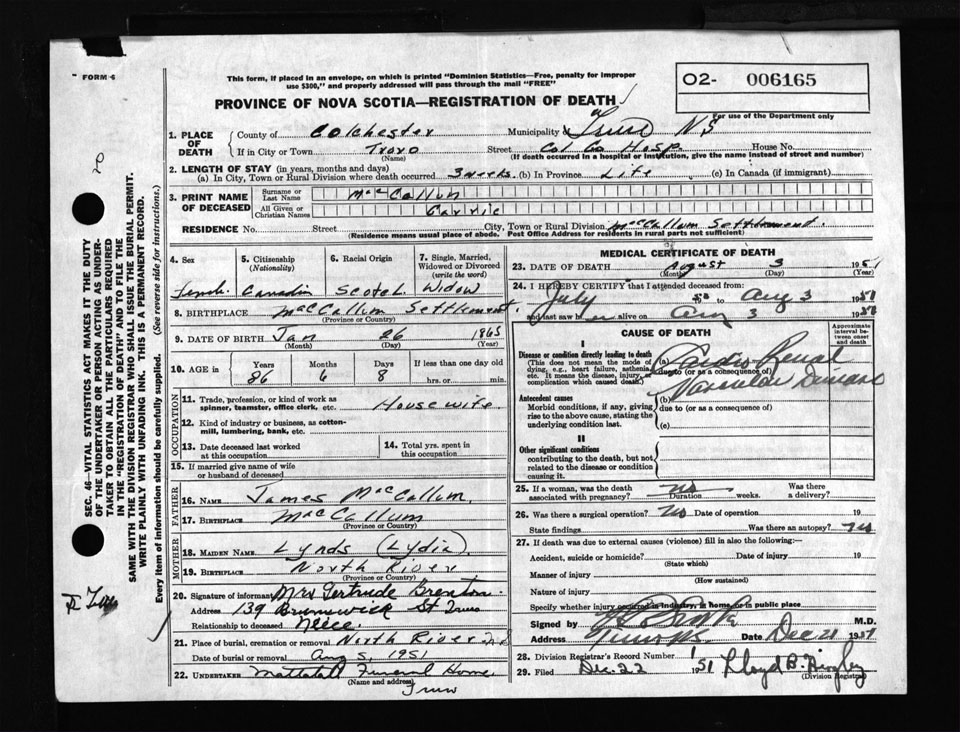 FORM 6
This form, if placed in an envelope, on which is printed "Dominion Statistics—Free, penalty for improper
use $300," and properly addressed will pass through the mail "FREE"
O2- 006165
PROVINCE OF NOVA SCOTIA—REGISTRATION OF DEATH
For use of the Department only
1. PLACE OF DEATH { County of Colchester Municipality of Truro N S
If in City or Town Truro (Name) Street Col Co Hosp. House No.
(If death occurred in a hospital or institution, give the name instead of street and number)
2. LENGTH OF STAY (in years, months and days)
(a) In City, Town or Rural Division where death occurred 3 weeks. (b) In Province Life (c) In Canada (if immigrant)
3. PRINT NAME OF DECEASED { Surname or Last Name MacCallum
All Given or Christian Names Carrie
RESIDENCE No. Street City, Town or Rural Division MacCallum Settlement.
(Residence means usual place of abode. Post Office Address for residents in rural parts not sufficient)
4. Sex
5. Citizenship (Nationality)
6. Racial Origin
7. Single, Married, Widowed or Divorced (write the word)
Female Canadian Scotch Widow
8. BIRTHPLACE MacCallum Settlement
(Province or Country)
9. DATE OF BIRTH Jan 26 1865
(Month) (Day) (Year)
10. AGE in { Years Months Days If less than one day old
86 6 8 hrs. or min.
OCCUPATION
11. Trade, profession, or kind of work as spinner, teamster, office clerk, etc. Housewife
12. Kind of industry or business, as cotton-mill, lumbering, bank, etc.
13. Date deceased last worked at this occupation
14. Total yrs. spent in this occupation
15. If married give name of wife or husband of deceased
FATHER
16. NAME James MacCallum
17. BIRTHPLACE MacCallum
(Province or Country)
MOTHER
18. MAIDEN NAME Lynds (Lydia)
19. BIRTHPLACE North River
(Province or Country)
20. Signature of informant Mrs Gertrude Brenton
Address 139 Brunswick St Truro
Relationship to deceased Neice
21. Place of burial, cremation or removal North River
Date of burial or removal Aug 5, 1951
22. UNDERTAKER Mattatall Funeral Home
(Name and address)
Truro
MEDICAL CERTIFICATE OF DEATH
23. DATE OF DEATH August 3 1951
(Month) (Day) (Year)
24. I HEREBY CERTIFY that I attended deceased from:
July to Aug 3 1951
and last saw her alive on Aug 3 1951
CAUSE OF DEATH
Approximate interval between onset and death
I
Disease or condition directly leading to death
(This does not mean the mode of dying, e.g., heart failure, asthenia, etc. It means the disease, injury, or complication which caused death.)
(a) Cardio Renal
due to (or as a consequence of)
Vascular Disease
Antecedent causes
Morbid conditions, if any, giving rise to the above cause, stating the underlying condition last.
(b)
due to (or as a consequence of)
(c)
II
Other significant conditions
contributing to the death, but not related to the disease or condition causing it.
25. If a woman, was the death associated with pregnancy? no Duration weeks. Was there a delivery?
26. Was there a surgical operation? No Date of operation 19
State findings Was there an autopsy? no
27. If death was due to external causes (violence) fill in also the following:—
Accident, suicide or homicide? Date of injury 19
(State which)
Manner of injury
(How sustained)
Nature of injury
Specify whether injury occurred in industry, in home, or in public place
Signed by M.D.
Address Truro N.S. Date Dec 21 1951
28. Division Registrar's Record Number
29. Filed Dec. 22 1951 Lloyd B.
(Division Registrar)
SEC. 46—VITAL STATISTICS ACT MAKES IT THE DUTY
OF THE UNDERTAKER OR PERSON ACTING AS UNDER-
TAKER TO OBTAIN ALL THE PARTICULARS REQUIRED
IN THE "REGISTRATION OF DEATH" AND TO FILE THE
SAME WITH THE DIVISION REGISTRAR WHO SHALL ISSUE THE BURIAL PERMIT.
WRITE PLAINLY WITH UNFADING INK. THIS IS A PERMANENT RECORD.
Every item of information should be carefully supplied. (See reverse side for instructions.)